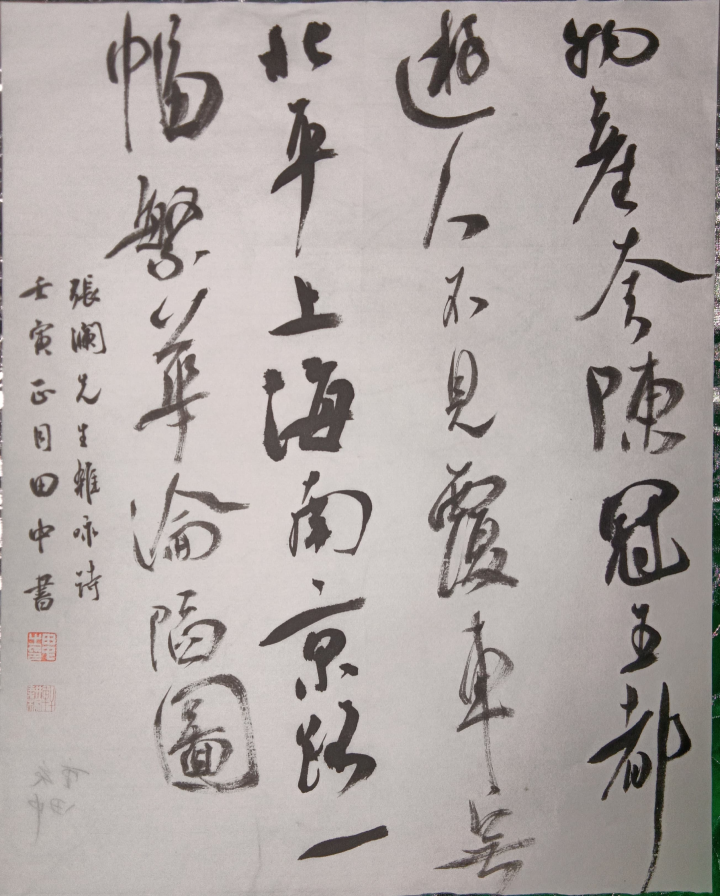 物產夸陳冠五都
遊人不見覆車無
北平上海南京路一
幅繁華淪陷圖
張瀾先生雜咏詩
壬寅正月田中書